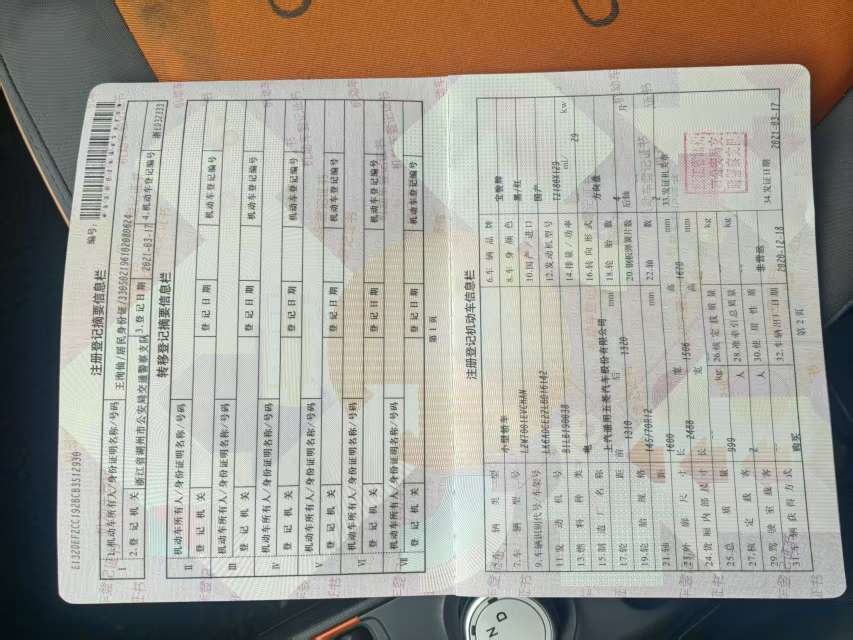 编号:
E1320EF2CC1928CB3512930
注册登记摘要信息栏
I
1.机动车所有人/身份证明名称/号码
王洵仙/居民身份证/330502196102080624
2.登记机关
浙江省湖州市公安局交通警察支队
3.登记日期
2021-03-17
4.机动车登记编号
浙ED32333
转移登记摘要信息栏
II
机动车所有人/身份证明名称/号码
登记机关
登记日期
机动车登记编号
III
机动车所有人/身份证明名称/号码
登记机关
登记日期
机动车登记编号
IV
机动车所有人/身份证明名称/号码
登记机关
登记日期
机动车登记编号
V
机动车所有人/身份证明名称/号码
登记机关
登记日期
机动车登记编号
VI
机动车所有人/身份证明名称/号码
登记机关
登记日期
机动车登记编号
VII
机动车所有人/身份证明名称/号码
登记机关
登记日期
机动车登记编号
第 1 页
注册登记机动车信息栏
5.车辆类型 小型轿车 6.车辆品牌 宝骏牌
7.车辆型号 LZW7001EVCHAN 8.车身颜色 黑/红
9.车辆识别代号/车架号 10.国产/进口 国产
11.发动机号 12.发动机型号 TZ180X129
13.燃料种类 电 14.排量/功率 mL/ 29 kw
15.制造厂名称 上汽通用五菱汽车股份有限公司 16.转向形式 方向盘
17.轮距 前 1310 后 1320 mm 18.轮胎数 4
19.轮胎规格 145/70R12 20.钢板弹簧片数 后轴 片
21.轴距 1600 mm 22.轴数 2
23.外廓尺寸 长 2488 宽 1506 高 1670 mm 33.发证机关章
24.货厢内部尺寸 长 宽 高 mm
25.总质量 999 kg 26.核定载质量 kg
27.核定载客 2 人 28.准牵引总质量 kg
29.驾驶室载客 人 30.使用性质 非营运
31.车辆获得方式 购买 32.车辆出厂日期 2020-12-18 34.发证日期 2021-03-17
第 2 页
N
D